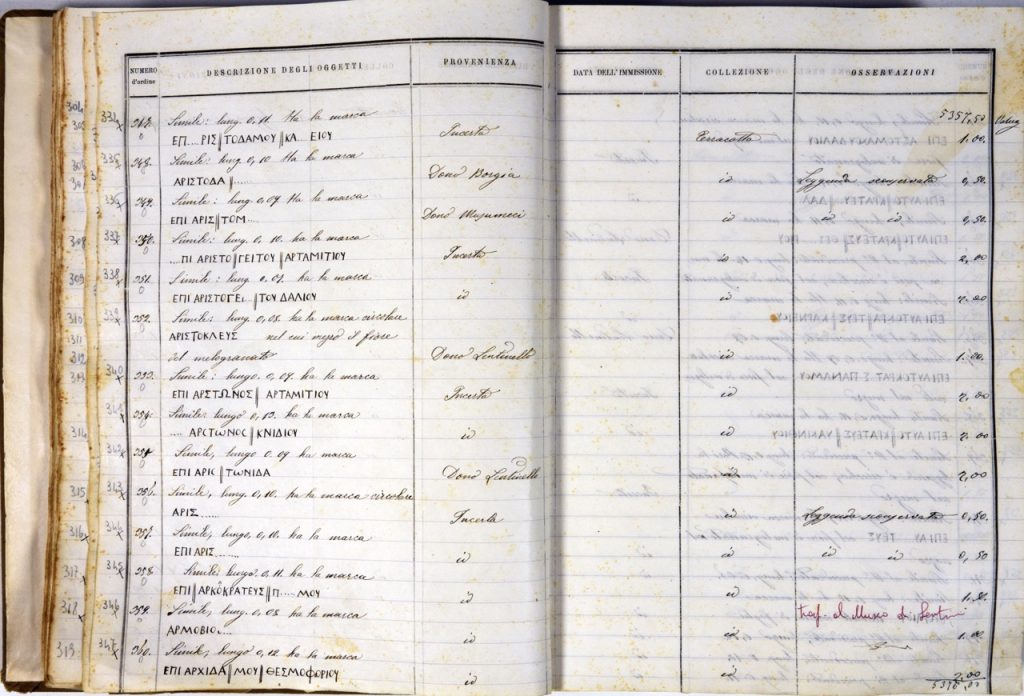 NUMERO d'ordine DESCRIZIONE DEGLI OGGETTI PROVENIENZA DATA DELL'IMMISSIONE COLLEZIONE OSSERVAZIONI
5357,50
304 334 Simile: lung. 0,11. Ha la marca
305 ΕΠΙ....ΡΙΣ||ΤΟΔΑΜΟΥ||ΚΑ...ΕΙΟΥ Incerta Terracotta 1.00.
335 348. Simile: lung. 0,10 Ha la marca
ΑΡΙΣΤΟΔΑ||..... Dono Borgia id Leggenda sconservata 0,50.
336 349. Simile: lung. 0,07 Ha la marca
ΕΠΙ ΑΡΙΣ||ΤΟΜ..... Dono Musumeci id id id 0,50.
337 350. Simile: lung. 0,10. ha la marca
308 ...ΠΙ ΑΡΙΣΤΟ||ΓΕΙΤΟΥ||ΑΡΤΑΜΙΤΙΟΥ Incerta id 2,00
309 338 351. Simile: lung. 0.07. ha la marca
ΕΠΙ ΑΡΙΣΤΟΓΕΙ..||ΤΟΥ ΔΑΛΙΟΥ id id 2.00
310 339 352. Simile: lung. 0,08. ha la marca circolare
311 ΑΡΙΣΤΟΚΛΕΥΣ nel cui mezzo il fiore
312 del melogranato Dono Lentinelli id 1.00.
313 340 353. Simile: lungo. 0,07. ha la marca
ΕΠΙ ΑΡΣΤΩΝΟΣ||ΑΡΤΑΜΙΤΙΟΥ Incerta id 2,00
354. Simile: lungo 0,13. ha la marca
314 ....ΑΡΣΤΩΝΟΣ||ΚΝΙΔΙΟΥ id id 2.00
342 355. Simile, lungo 0.09 ha la marca
ΕΠΙ ΑΡΙΣ||ΤΩΝΙΔΑ Dono Lentinelli id 2,00
315 343 356. Simile, lung. 0,10. ha la marca circolare
ΑΡΙΣ....... Incerta id Leggenda sconservata 0,50.
316 344 357. Simile, lungo, 0,10. ha la marca
ΕΠΙ ΑΡΙΣ........ id id id id 0,50
317 345 358. Simile: lungo 0,11. ha la marca
ΕΠΙ||ΑΡΚΟΚΡΑΤΕΥΣ||Π.....ΜΟΥ id id
318 346 359. Simile, lung. 0,08. ha la marca trasf. al Museo di Lentini
ΑΡΜΟΒΙΟ..... id id 1.00
319 347 360. Simile, lung. 0,12 ha la marca
ΕΠΙ ΑΡΧΙΔΑ||ΜΟΥ||ΘΕΣΜΟΦΟΡΙΟΥ id id 2.00